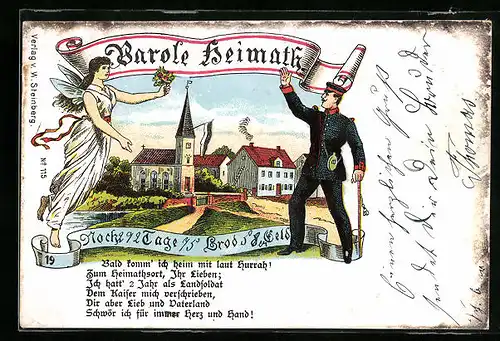 Parole Heimath
Verlag v. W. Steinberg.
No 115
Noch 92 Tage 75 Brod u. 8 Geld
19
Bald komm' ich heim mit laut Hurrah!
Zum Heimathsort, Ihr Lieben;
Ich hatt' 2 Jahr als Landsoldat
Dem Kaiser mich verschrieben,
Dir aber Lieb und Vaterland
Schwör ich für immer Herz und Hand!
sendet dir dein Bruder
Thomas